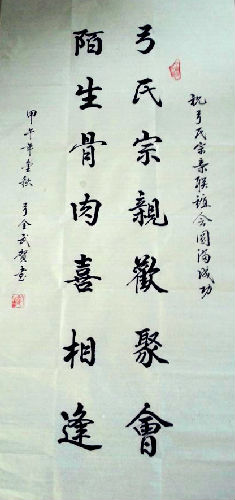 祝弓氏宗亲联谊会圆满成功
弓氏宗親歡聚會
陌生骨肉喜相逢
甲午年金秋 弓全武贺书